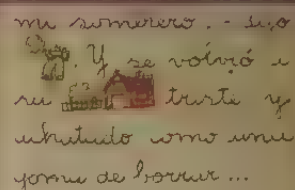 mi sombrero. - dijo
. Y se volvió a
su triste y
como una
goma de borrar ...